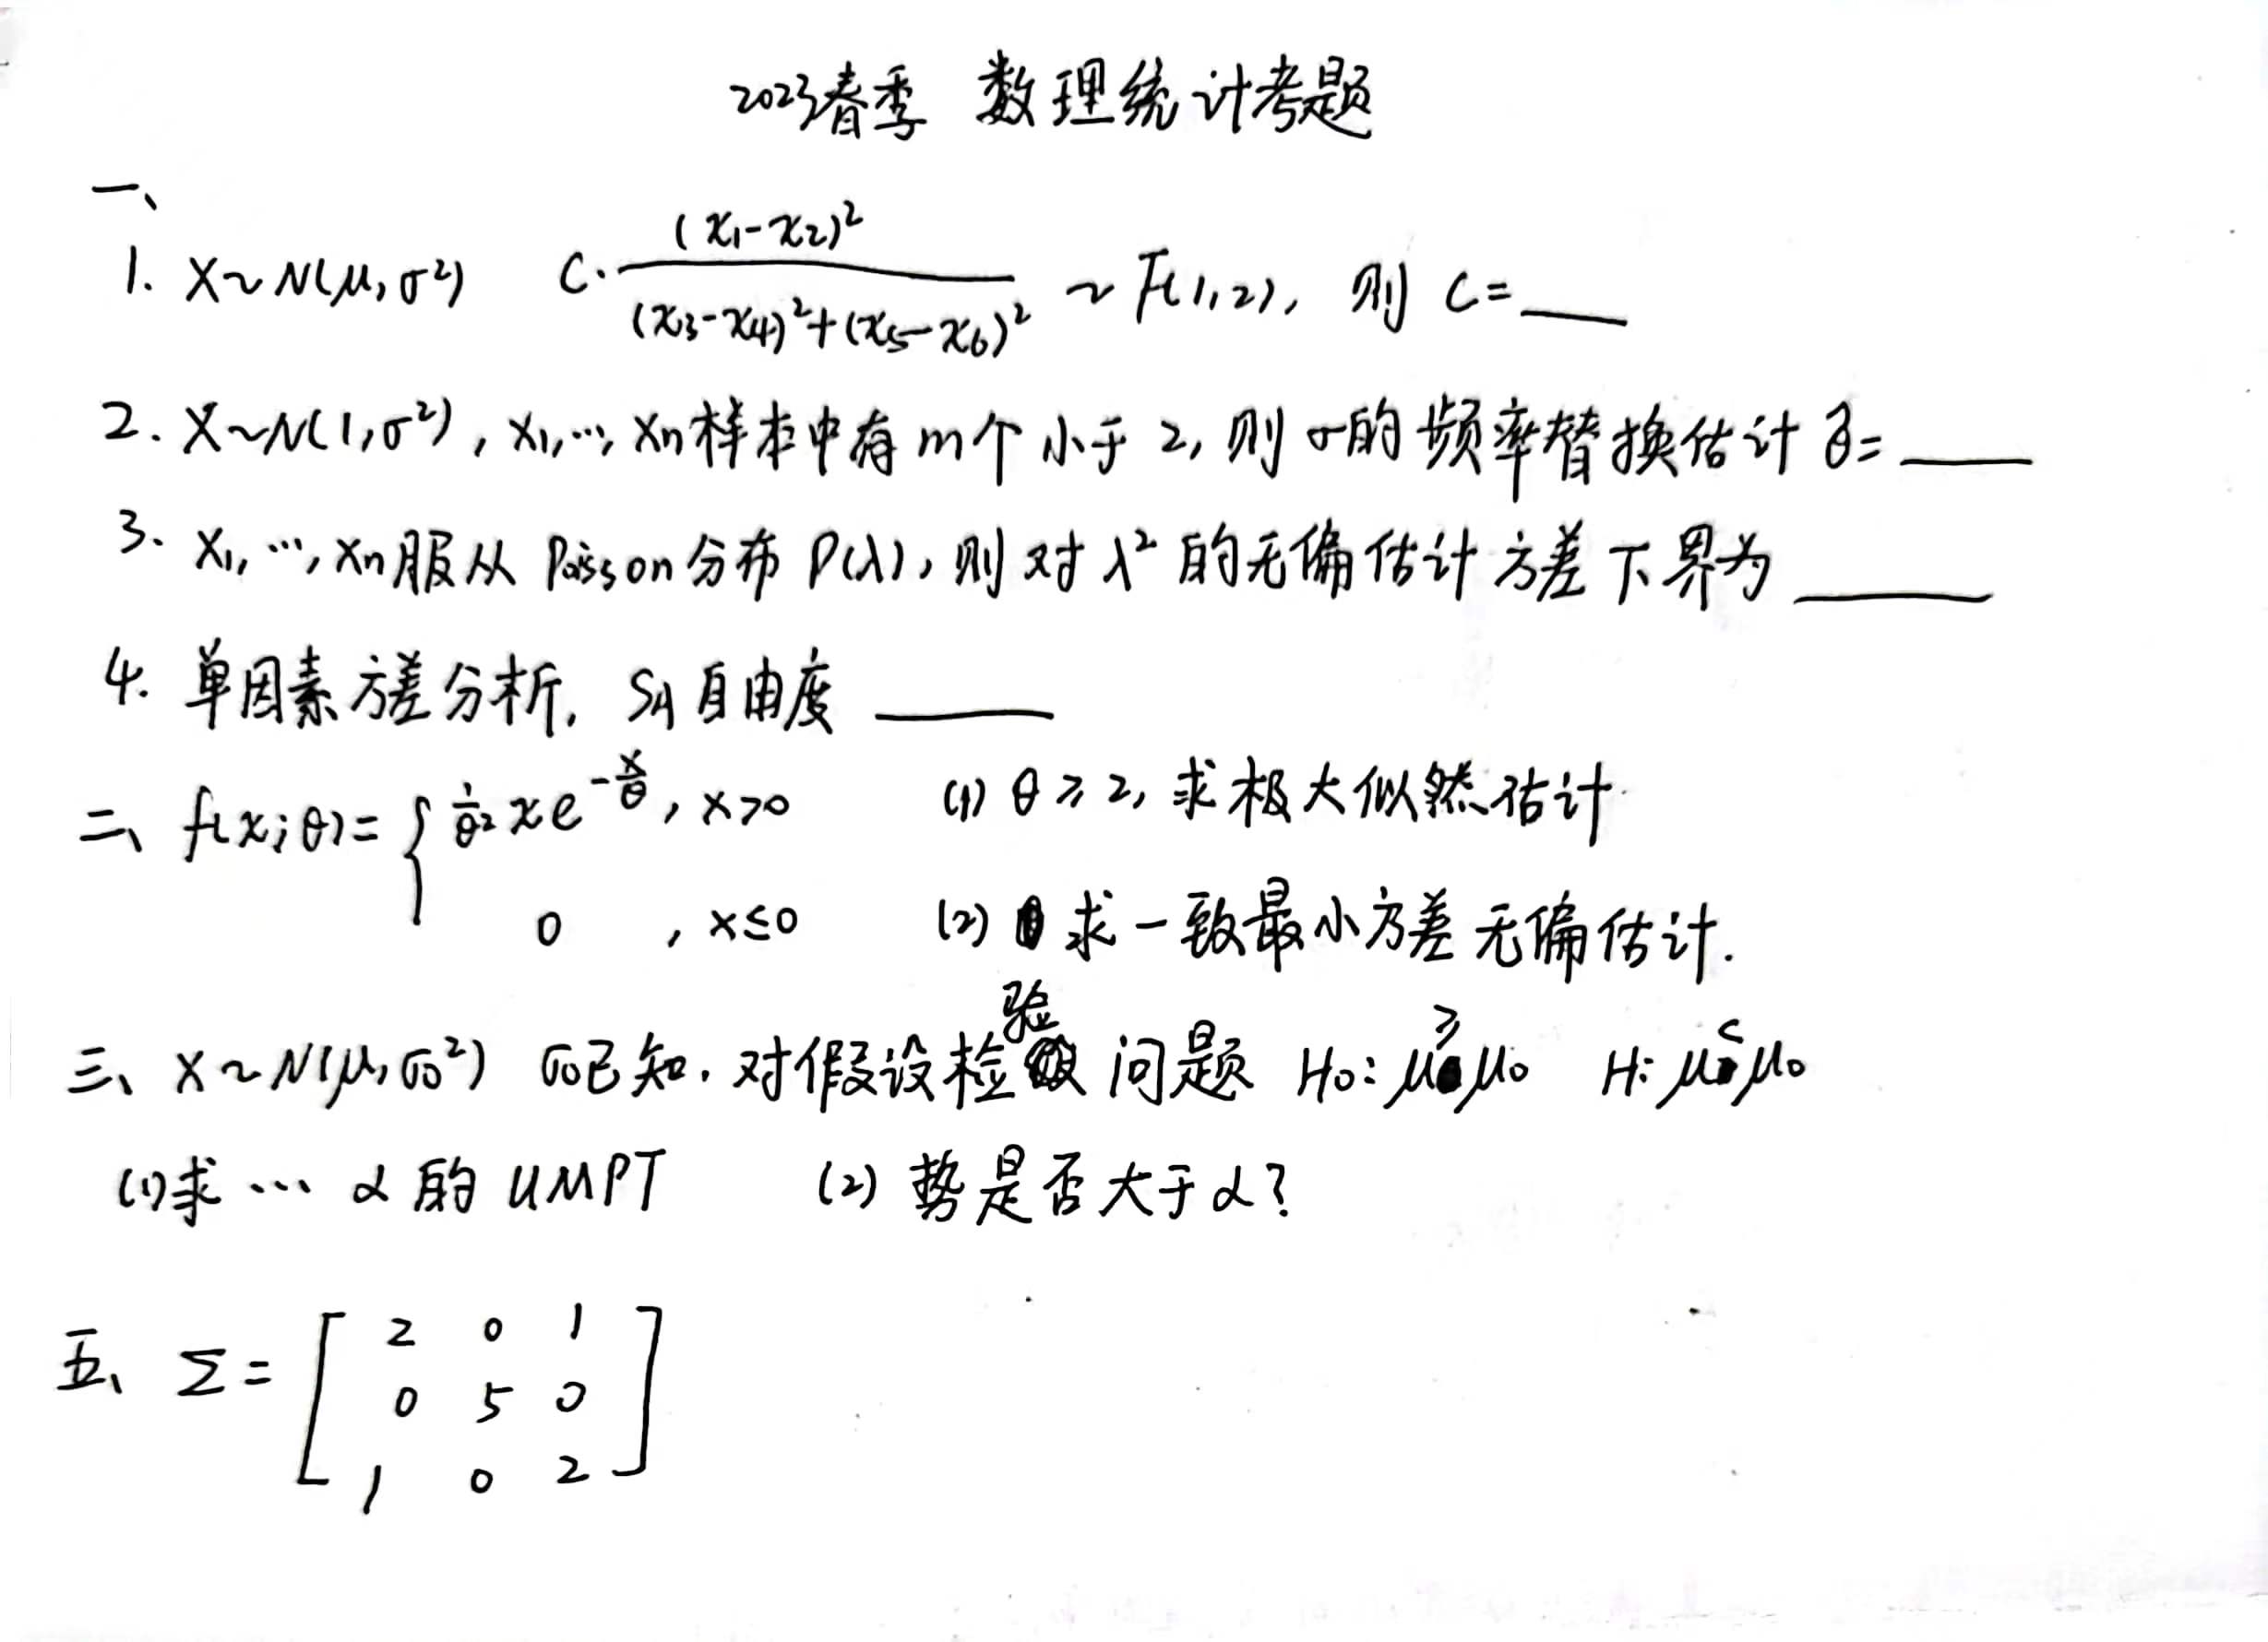 2023春季 数理统计考题
一、
1. X~N(μ,σ²) C·(x₁-x₂)²/((x₃-x₄)²+(x₅-x₆)²) ~ F(1,2), 则 C=____
2. X~N(1,σ²), x₁,…,xₙ样本中有m个小于2,则σ的频率替换估计σ̂=____
3. x₁,…,xₙ服从Poisson分布P(λ),则对λ²的无偏估计方差下界为____
4. 单因素方差分析, SA自由度____
二、f(x;θ)={ 1/θ² x e^(-x/θ), x>0 (1) θ≥2, 求极大似然估计.
0 , x≤0 (2) 求一致最小方差无偏估计.
三、X~N(μ,σ₀²) σ₀已知. 对假设检验问题 H₀: μ≥μ₀ H₁: μ<μ₀
(1)求…α的UMPT (2) 势是否大于α?
五、Σ= [ 2 0 1
0 5 0
1 0 2 ]